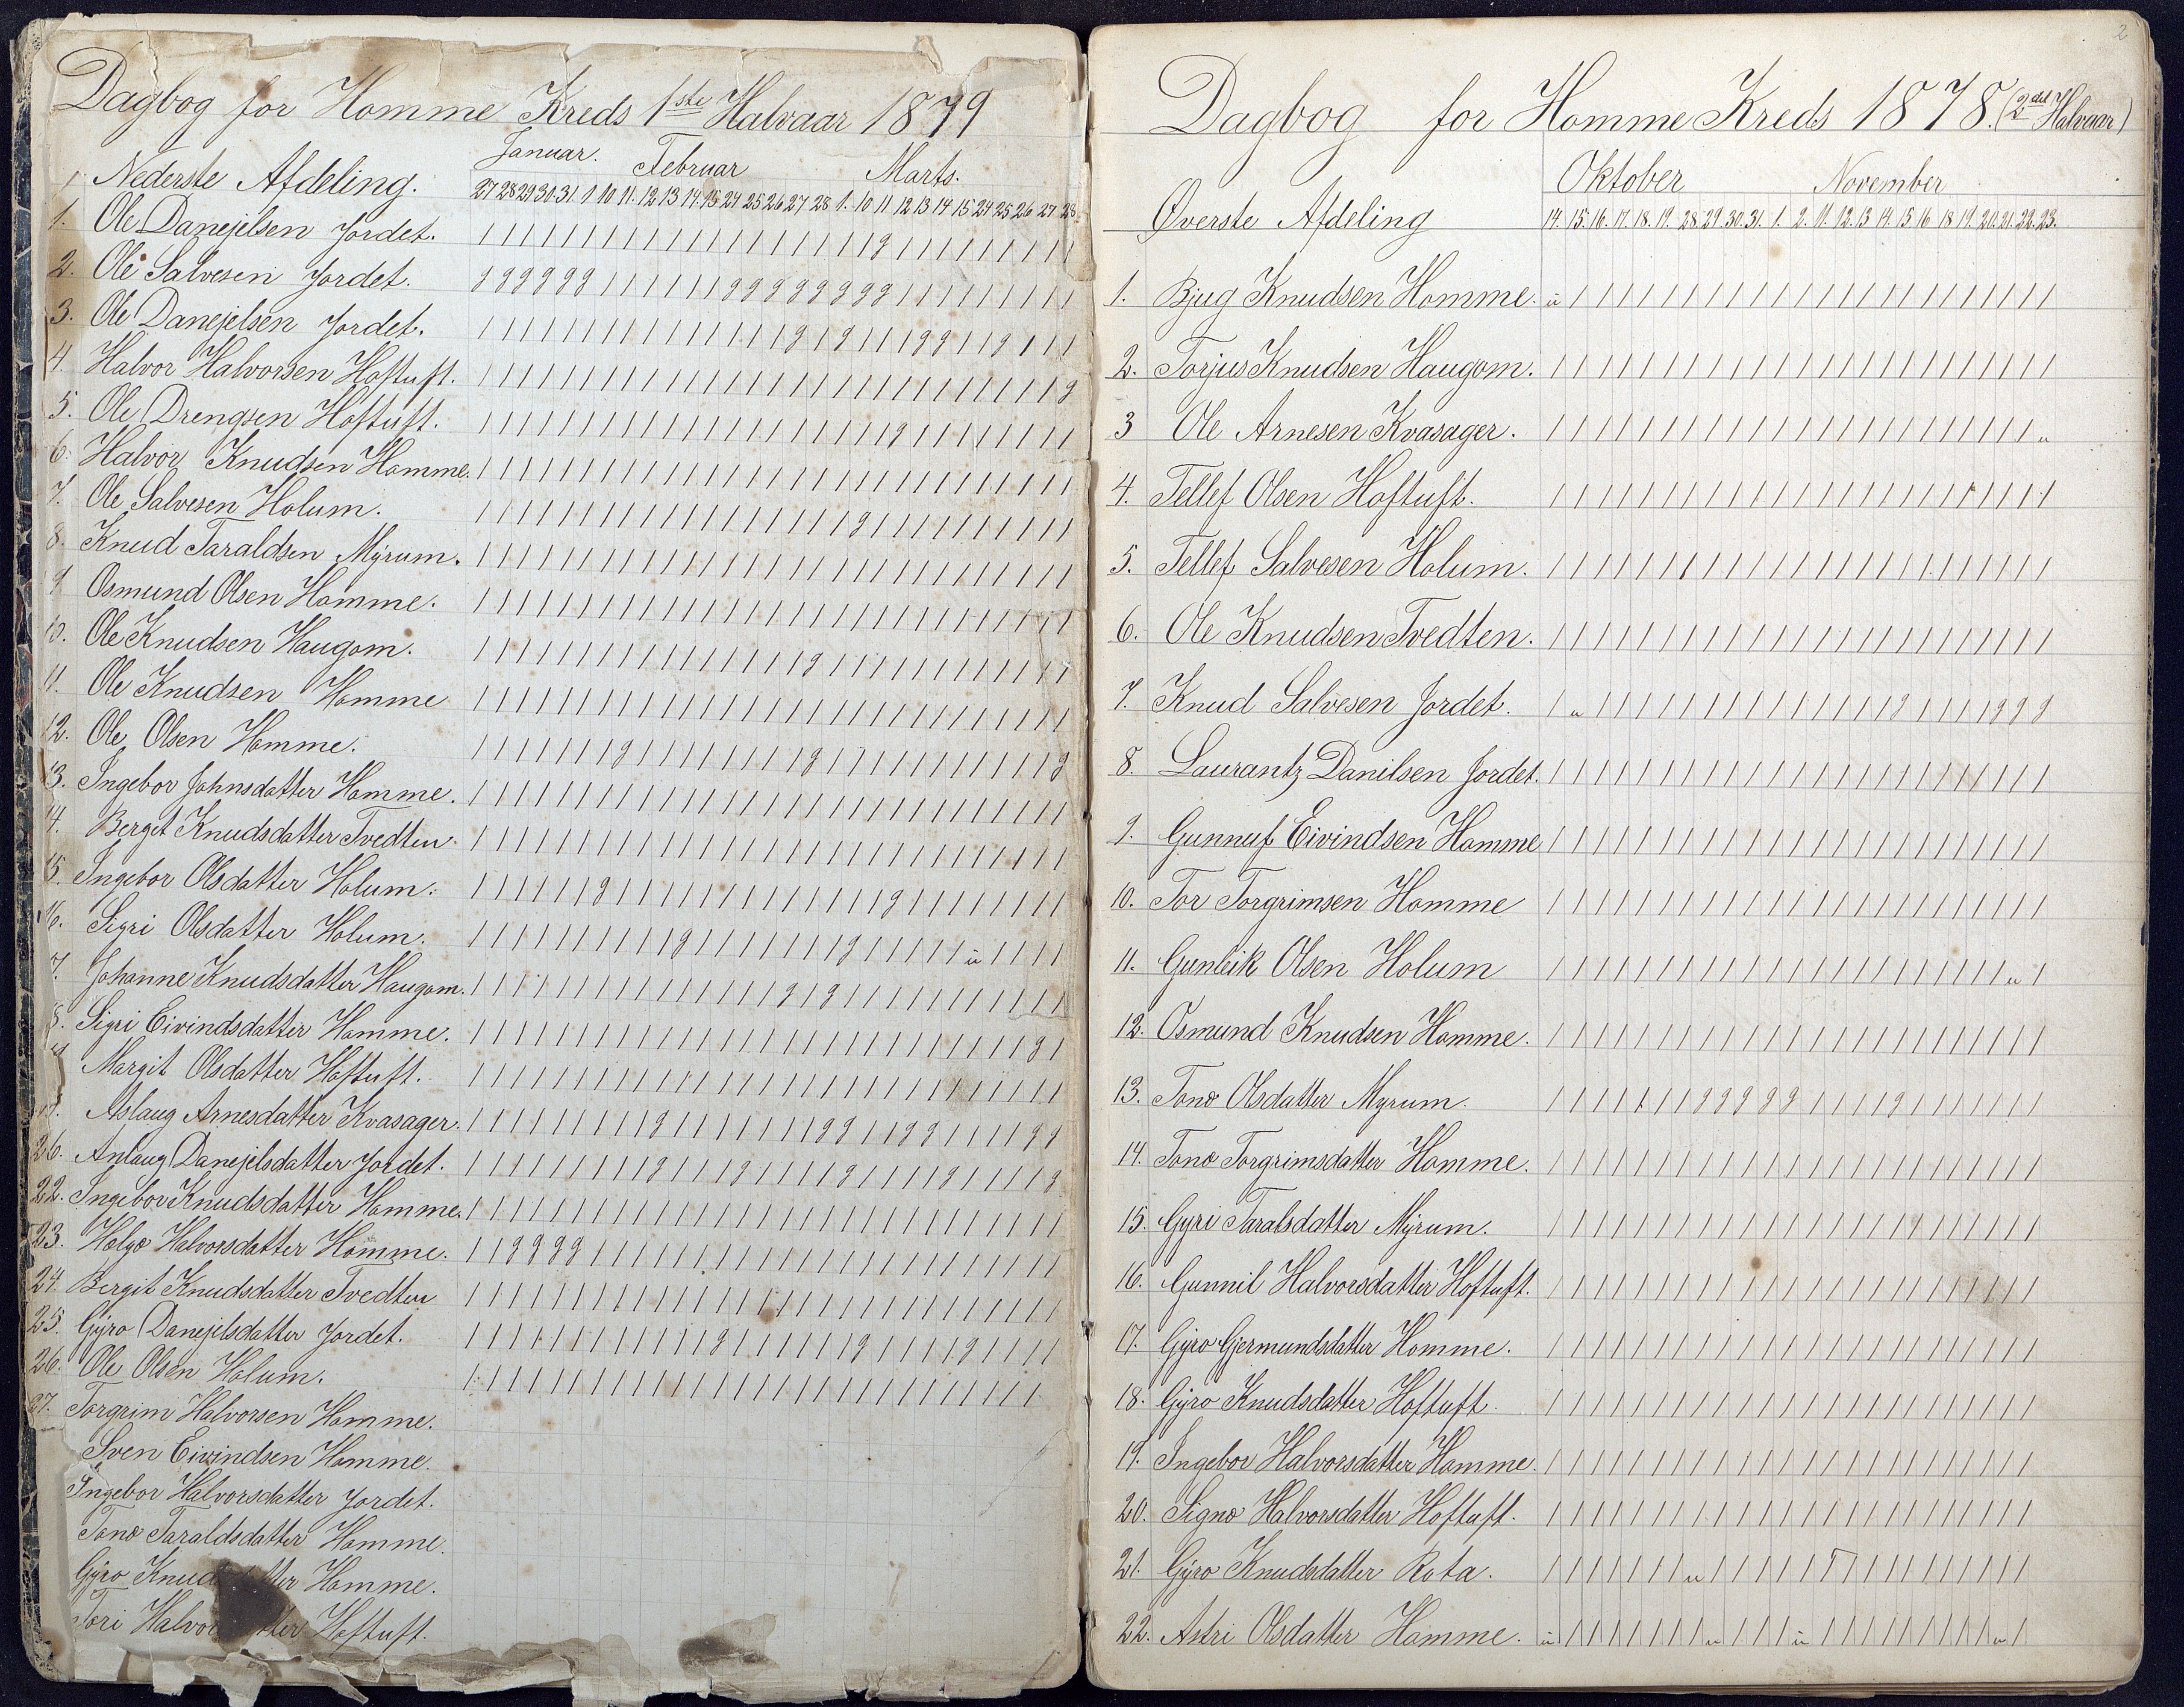 Dagbog for Homme Kreds 1ste Halvaar 1879
Januar. Februar Marts.
Nederste Afdeling.
27 28 29 30. 31. 9 10 11. 12 13 14. 15 24 25 26 27 28 1. 10 11 12 13 14 15 24 25 26 27 28
1. Ole Danejelsen Jordet.
2. Ole Salvesen Jordet.
3. Ole Danejelsen Jordet.
4. Halvor Halvorsen Hoftuft.
5. Ole Drengsen Hoftuft.
6. Halvor Knudsen Homme.
7. Ole Salvesen Holum.
8. Knud Taraldsen Myrum.
9 Osmund Olsen Homme.
10. Ole Knudsen Haugom.
11. Ole Knudsen Homme
12. Ole Olsen Homme.
13. Ingebor Johnsdatter Homme.
14. Berget Knudsdatter Tvedten.
15. Ingebor Olsdatter Holum.
16. Sigri Olsdatter Holum.
7. Johanne Knudsdatter Haugom.
8. Sigri Eivindsdatter Homme.
Margit Olsdatter Hoftuft.
Aslaug Arnesdatter Kvasager.
Anlaug Danejelsdatter Jordet.
22. Ingebor Knudsdatter Homme.
23. Helge Halvorsdatter Homme.
24. Bergit Knudsdatter Tvedten
25. Gyro Danejelsdatter Jordet.
26. Ole Olsen Holum.
27. Torgrim Halvorsen Homme.
Sven Eivindsen Homme.
Ingebor Halvorsdatter Jordet.
Tone Taraldsdatter Homme.
Gyro Homme.
Hoftuft.
2
Dagbog for Homme Kreds 1878. (2det Halvaar)
Oktober November
Øverste Afdeling 14. 15. 16. 17. 18. 19. 28. 29. 30. 31. 1. 2. 11. 12. 13 14. 15 16 18 19. 20. 21. 22. 23.
1. Bjug Knudsen Homme.
2. Torjus Knudsen Haugom.
3 Ole Arnesen Kvasager.
4. Tellef Olsen Hoftuft.
5. Tellef Salvesen Holum.
6. Ole Knudsen Tvedten.
7. Knud Salvesen Jordet.
8. Laurantz Danilsen Jordet.
9. Gunnuf Eivindsen Homme
10. Tor Torgrimsen Homme
11. Gunleik Olsen Holum
12. Osmund Knudsen Homme.
13. Tone Olsdatter Myrum.
14. Tone Torgrimsdatter Homme.
15. Gyri Taralsdatter Myrum.
16. Gunnil Halvorsdatter Hoftuft.
17. Gyro Gjermundsdatter Homme.
18. Gyro Knudsdatter Hoftuft.
19. Ingebor Halvorsdatter Homme.
20. Signe Halvorsdatter Hoftuft.
21. Gyro Knudsdatter Rota.
22. Astri Olsdatter Homme.